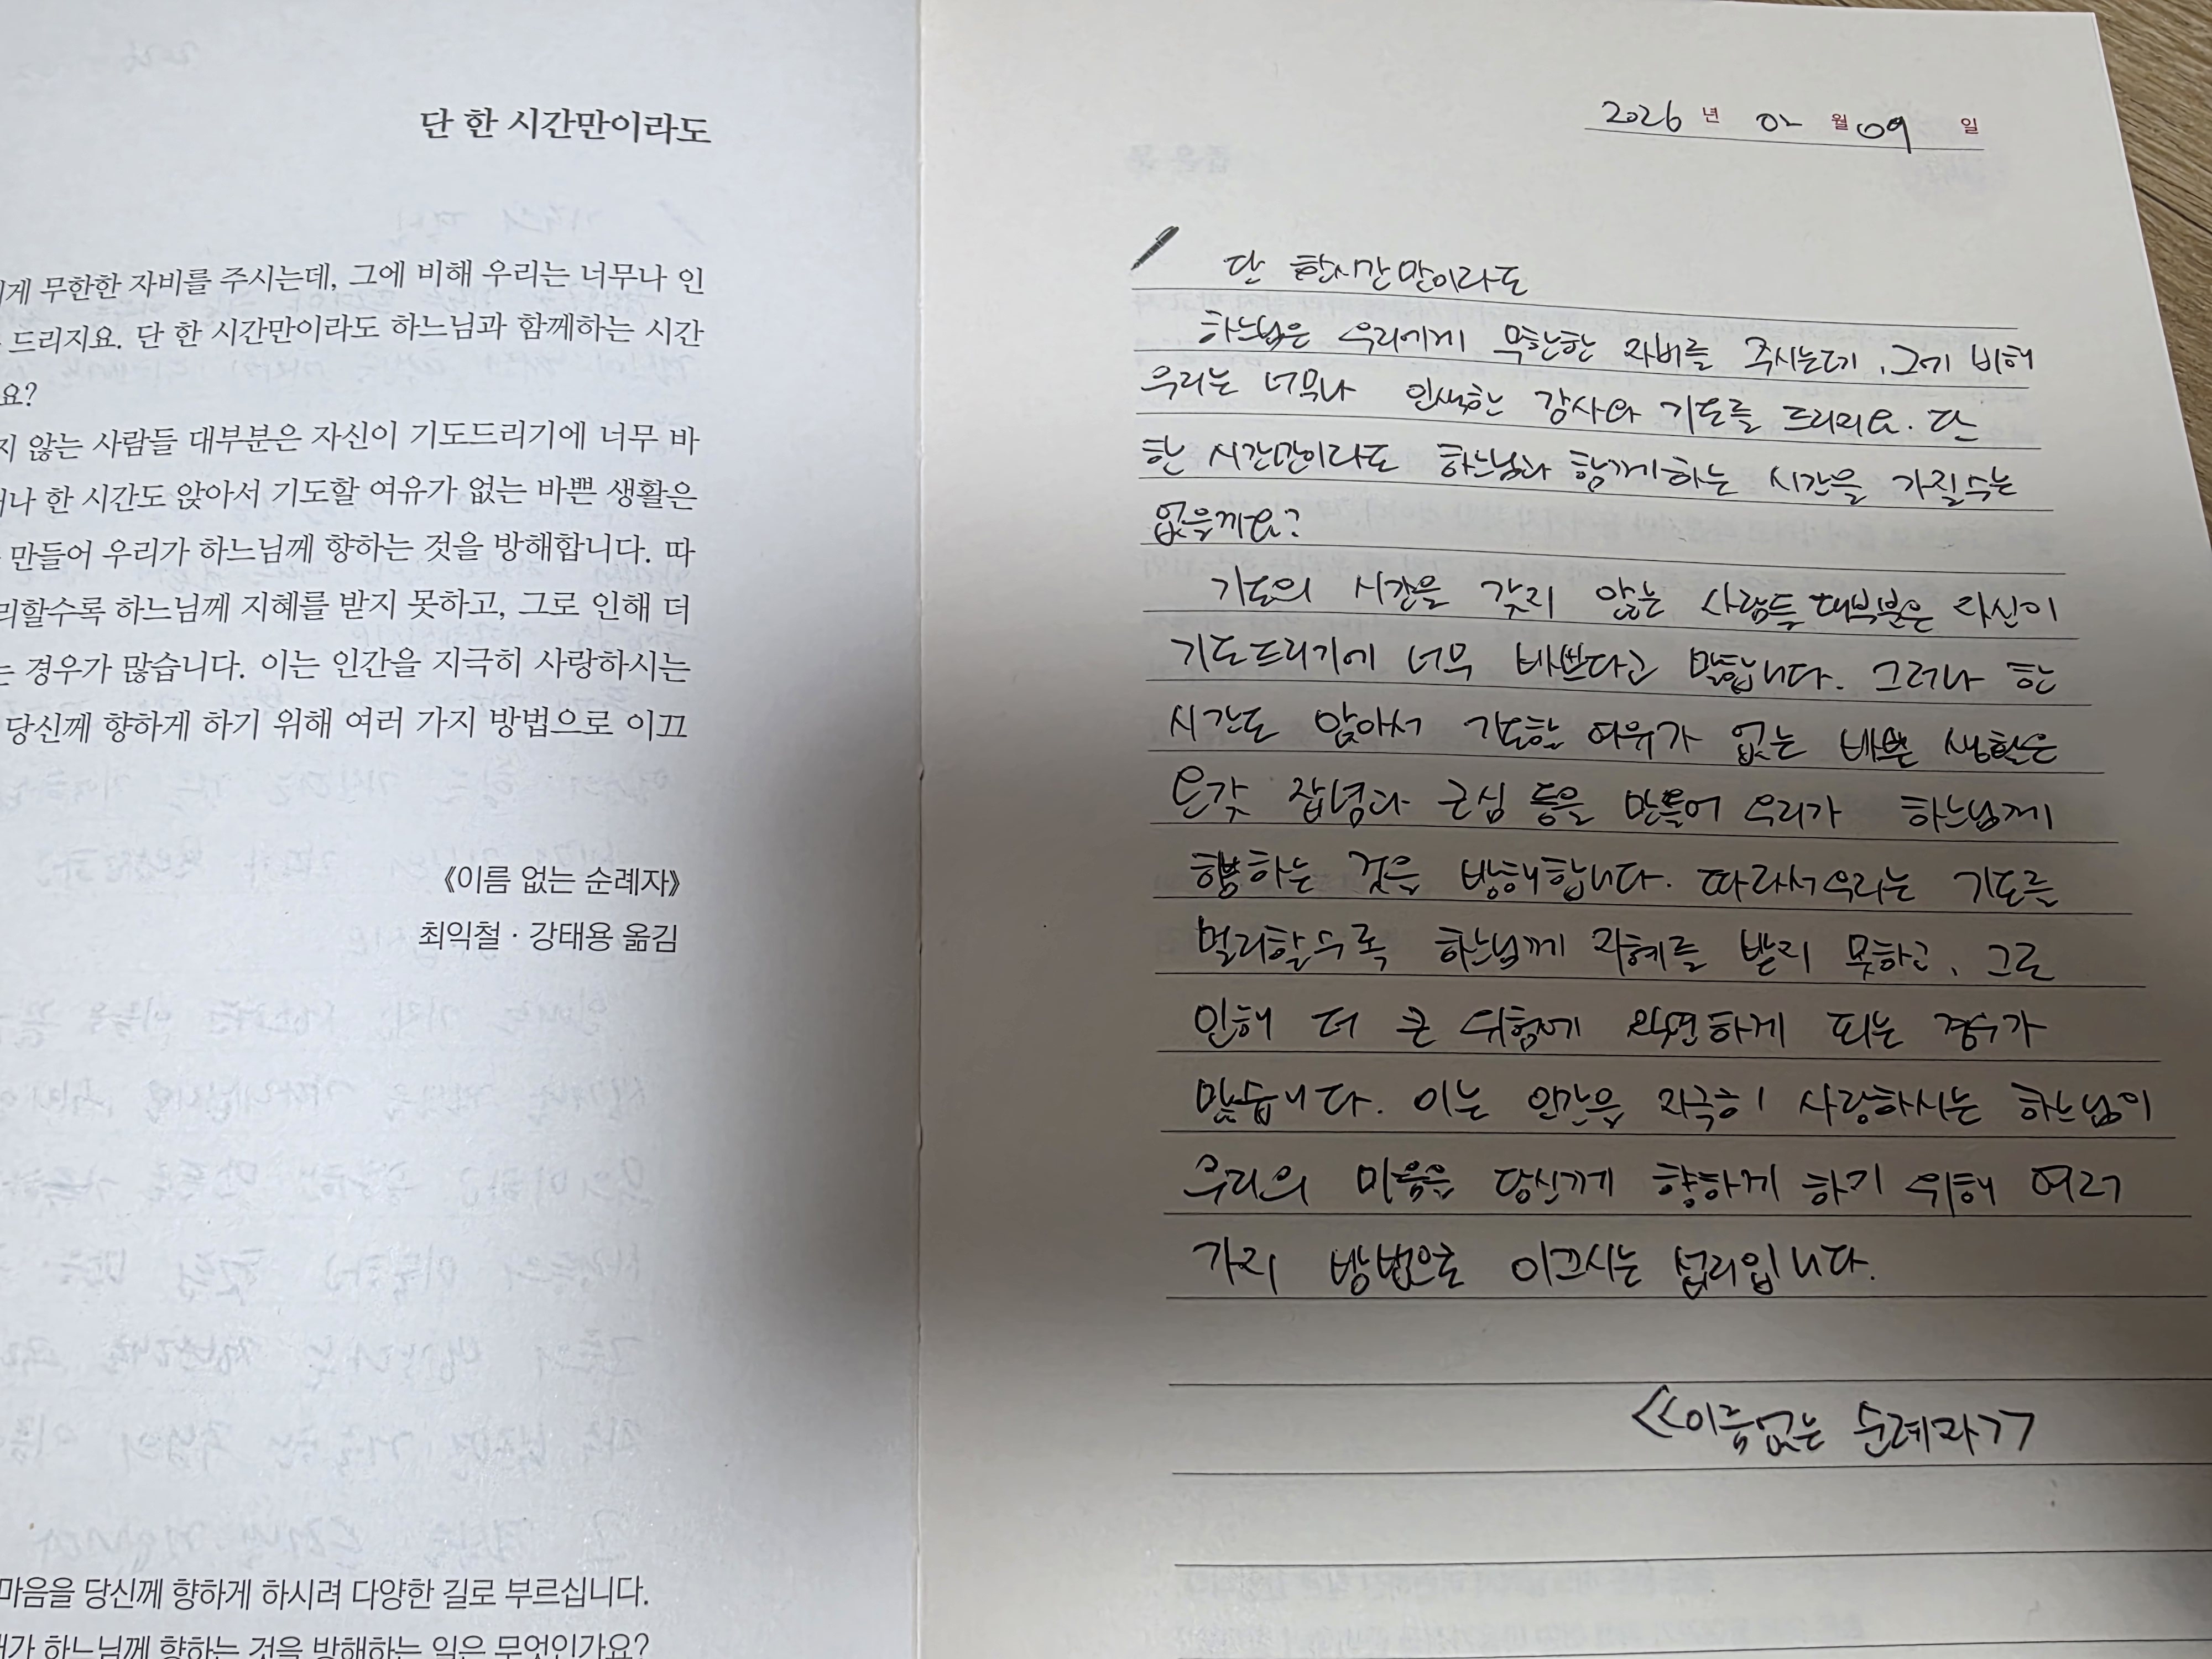 단 한 시간만이라도
게 무한한 자비를 주시는데, 그에 비해 우리는 너무나 인
드리지요. 단 한 시간만이라도 하느님과 함께하는 시간
요?
지 않는 사람들 대부분은 자신이 기도드리기에 너무 바
나 한 시간도 앉아서 기도할 여유가 없는 바쁜 생활은
만들어 우리가 하느님께 향하는 것을 방해합니다. 따
리할수록 하느님께 지혜를 받지 못하고, 그로 인해 더
는 경우가 많습니다. 이는 인간을 지극히 사랑하시는
당신께 향하게 하기 위해 여러 가지 방법으로 이끄
《이름 없는 순례자》
최익철 · 강태용 옮김
마음을 당신께 향하게 하시려 다양한 길로 부르십니다.
가 하느님께 향하는 것을 방해하는 일은 무엇인가요?
2026 년 02 월 09 일
단 한시간만이라도
하느님은 우리에게 무한한 자비를 주시는데, 그에 비해
우리는 너무나 인색한 감사와 기도를 드리지요. 단
한 시간만이라도 하느님과 함께하는 시간을 가질수는
없을까요?
기도의 시간을 갖지 않는 사람들 대부분은 자신이
기도드리기에 너무 바쁘다고 말합니다. 그러나 한
시간도 앉아서 기도할 여유가 없는 바쁜 생활은
온갖 잡념과 근심 등을 만들어 우리가 하느님께
향하는 것을 방해합니다. 따라서 우리는 기도를
멀리할수록 하느님께 지혜를 받지 못하고, 그로
인해 더 큰 위험에 직면하게 되는 경우가
많습니다. 이는 인간을 지극히 사랑하시는 하느님이
우리의 마음을 당신께 향하게 하기 위해 여러
가지 방법으로 이끄시는 섭리입니다.
<<이름없는 순례자>>